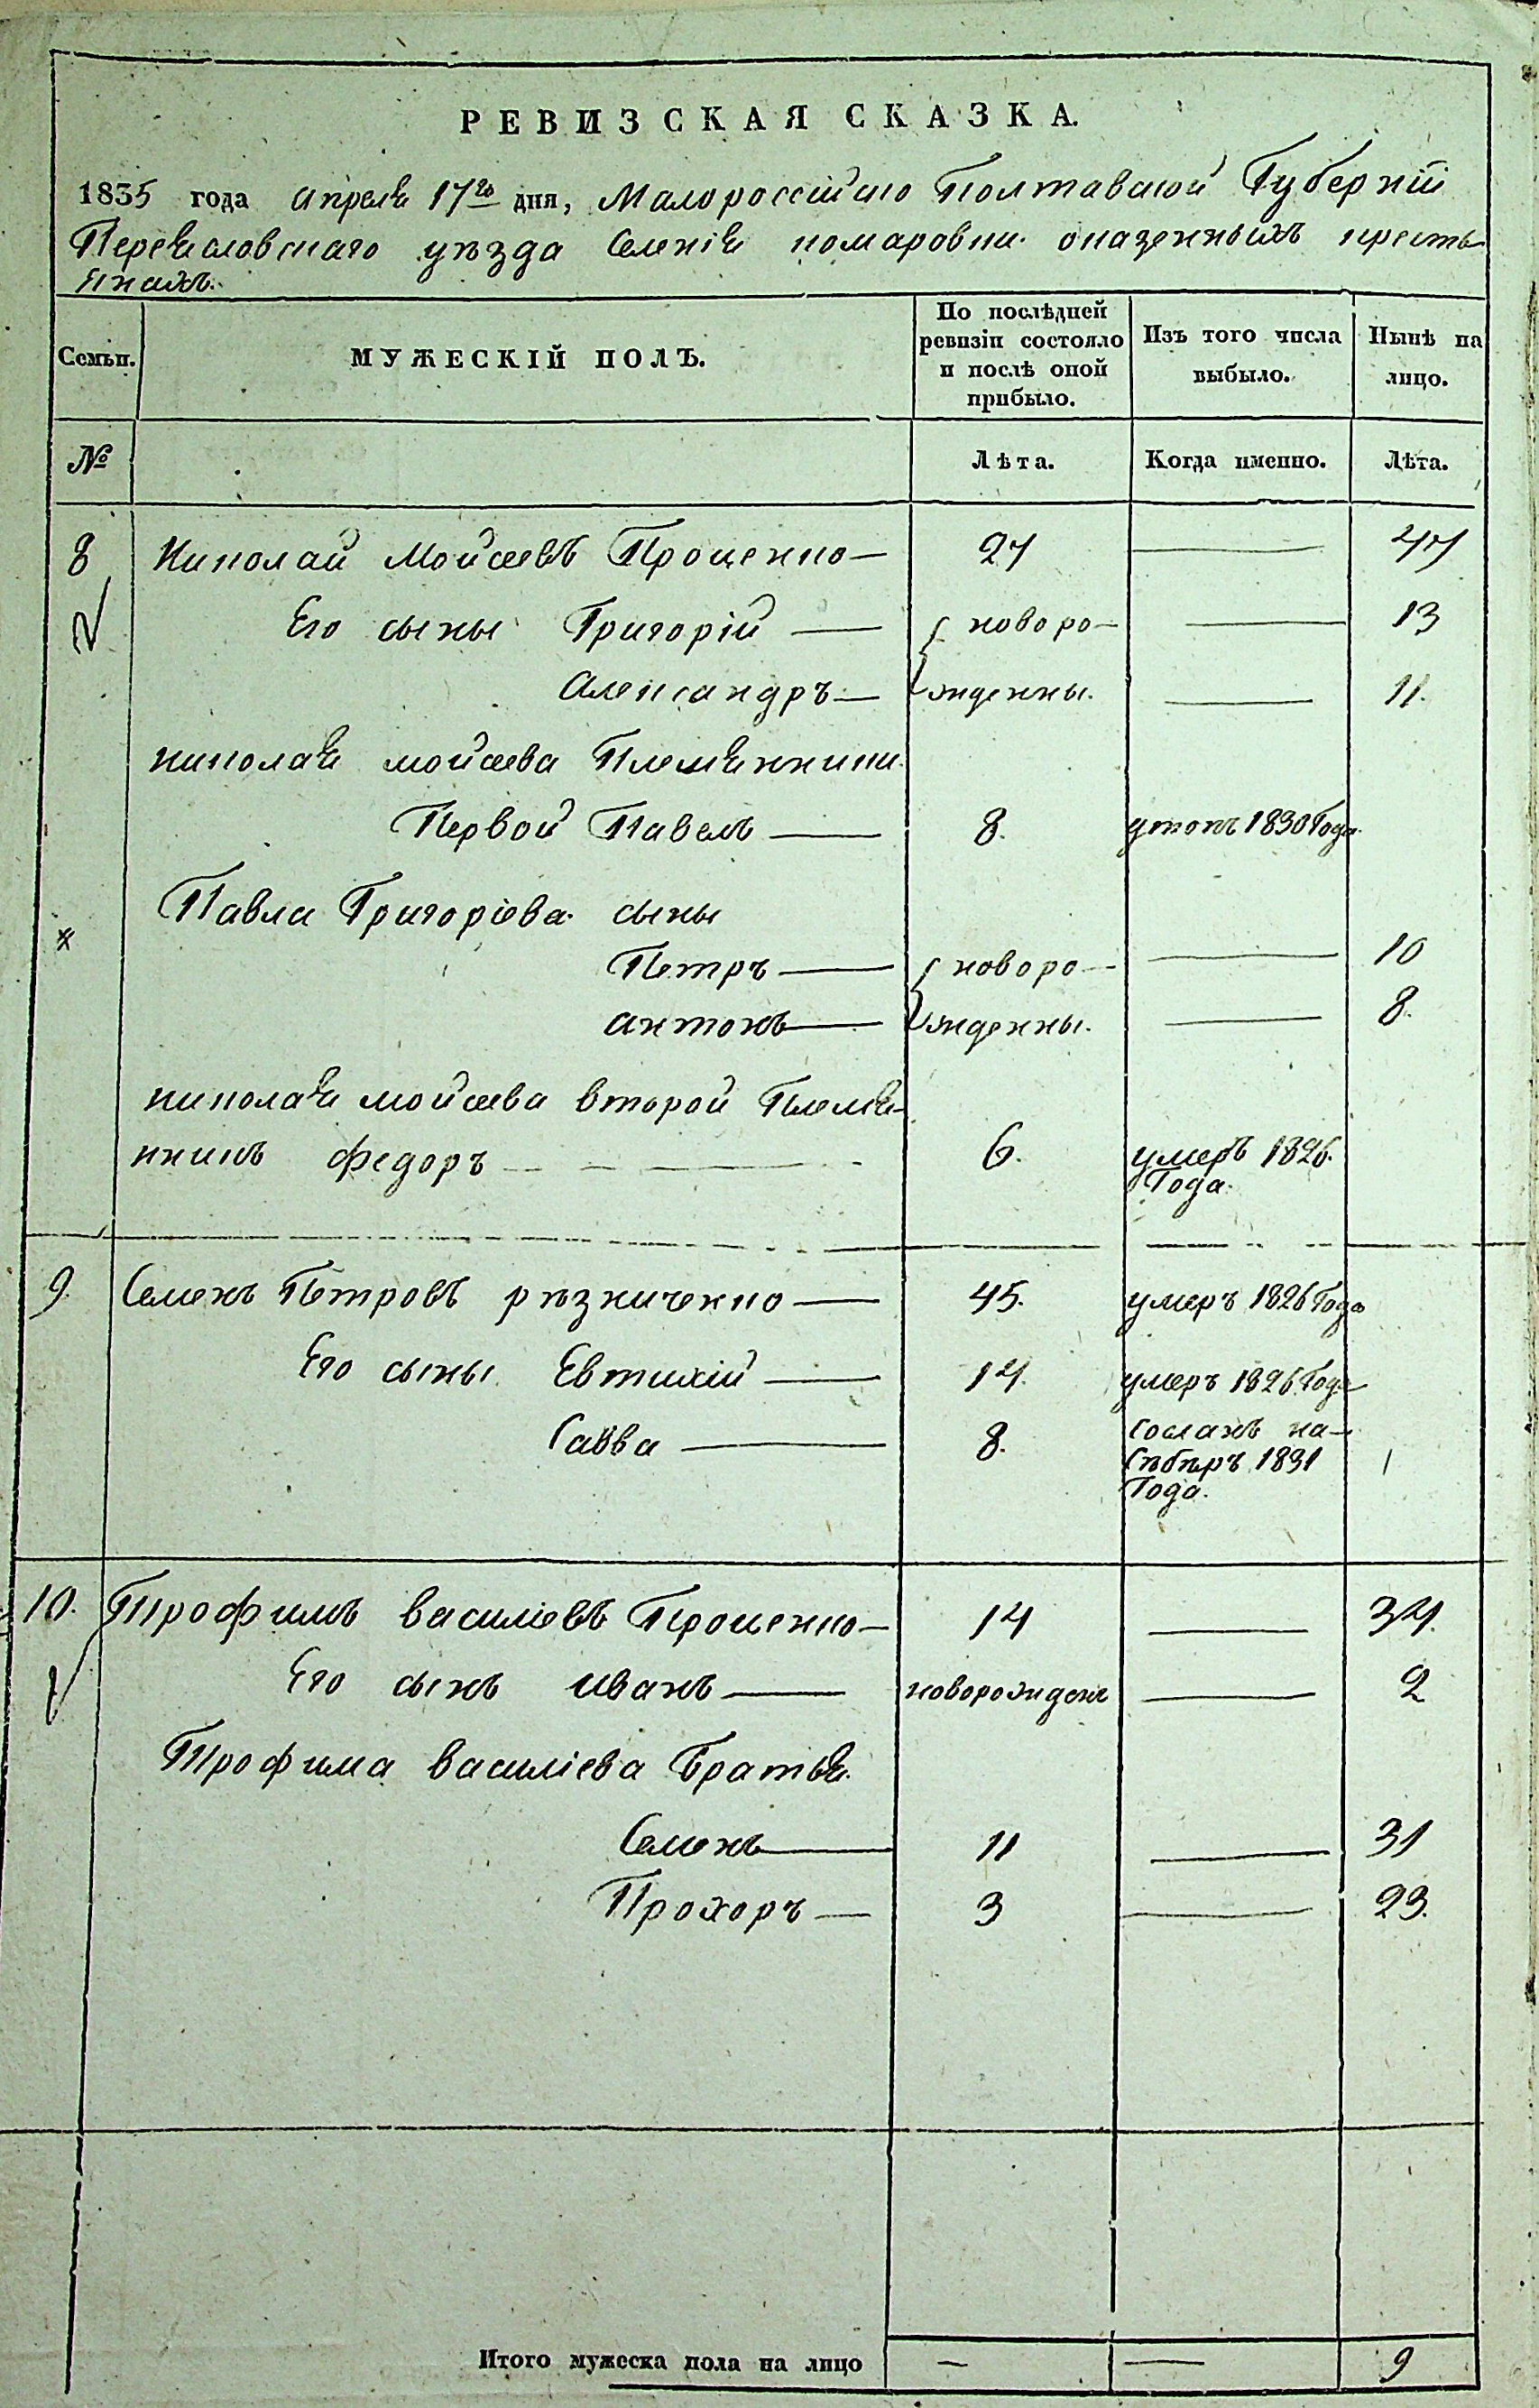 РЕВИЗСКАЯ СКАЗКА.
1835 года апреля 17го дня, Малороссійско Полтавской Губерніи
Переясловскаго уѣзда Селенія комаровки оказенныхъ кресть
янахъ.
Семьи. МУЖЕСКІЙ ПОЛЪ. По послѣдней ревизіи состояло и послѣ оной прибыло. Изъ того числа выбыло. Нынѣ на лицо.
№ Лѣта. Когда именно. Лѣта.
8 Николай Мойсеевъ Проценко — 27 — 47
Его сыны Григорій — новоро- — 13
Александръ — жденны. — 11.
николая мойсева Племянники
Первой Павелъ — 8. утопъ 1830 Года.
Павла Григоріева сыны
Петръ — новоро — — 10
антонъ — жденны. — 8.
николая мойсева второй Племя-
нникъ федоръ — 6. умеръ 1826.
Года.
9. Семенъ Петровъ рѣзниченко — 45. умеръ 1826 Года
Его сыны Евтихій — 14. умеръ 1826 Года
Савва — 8. сосланъ на-
Сѣбѣръ 1831
Года.
10. Трофимъ василіевъ Проценко — 14 — 34.
Его сынъ иванъ — новорожденъ — 2
Трофима василіева Братья.
Семенъ — 11 — 31
Прохоръ — 3 — 23.
Итого мужеска пола на лицо — — 9